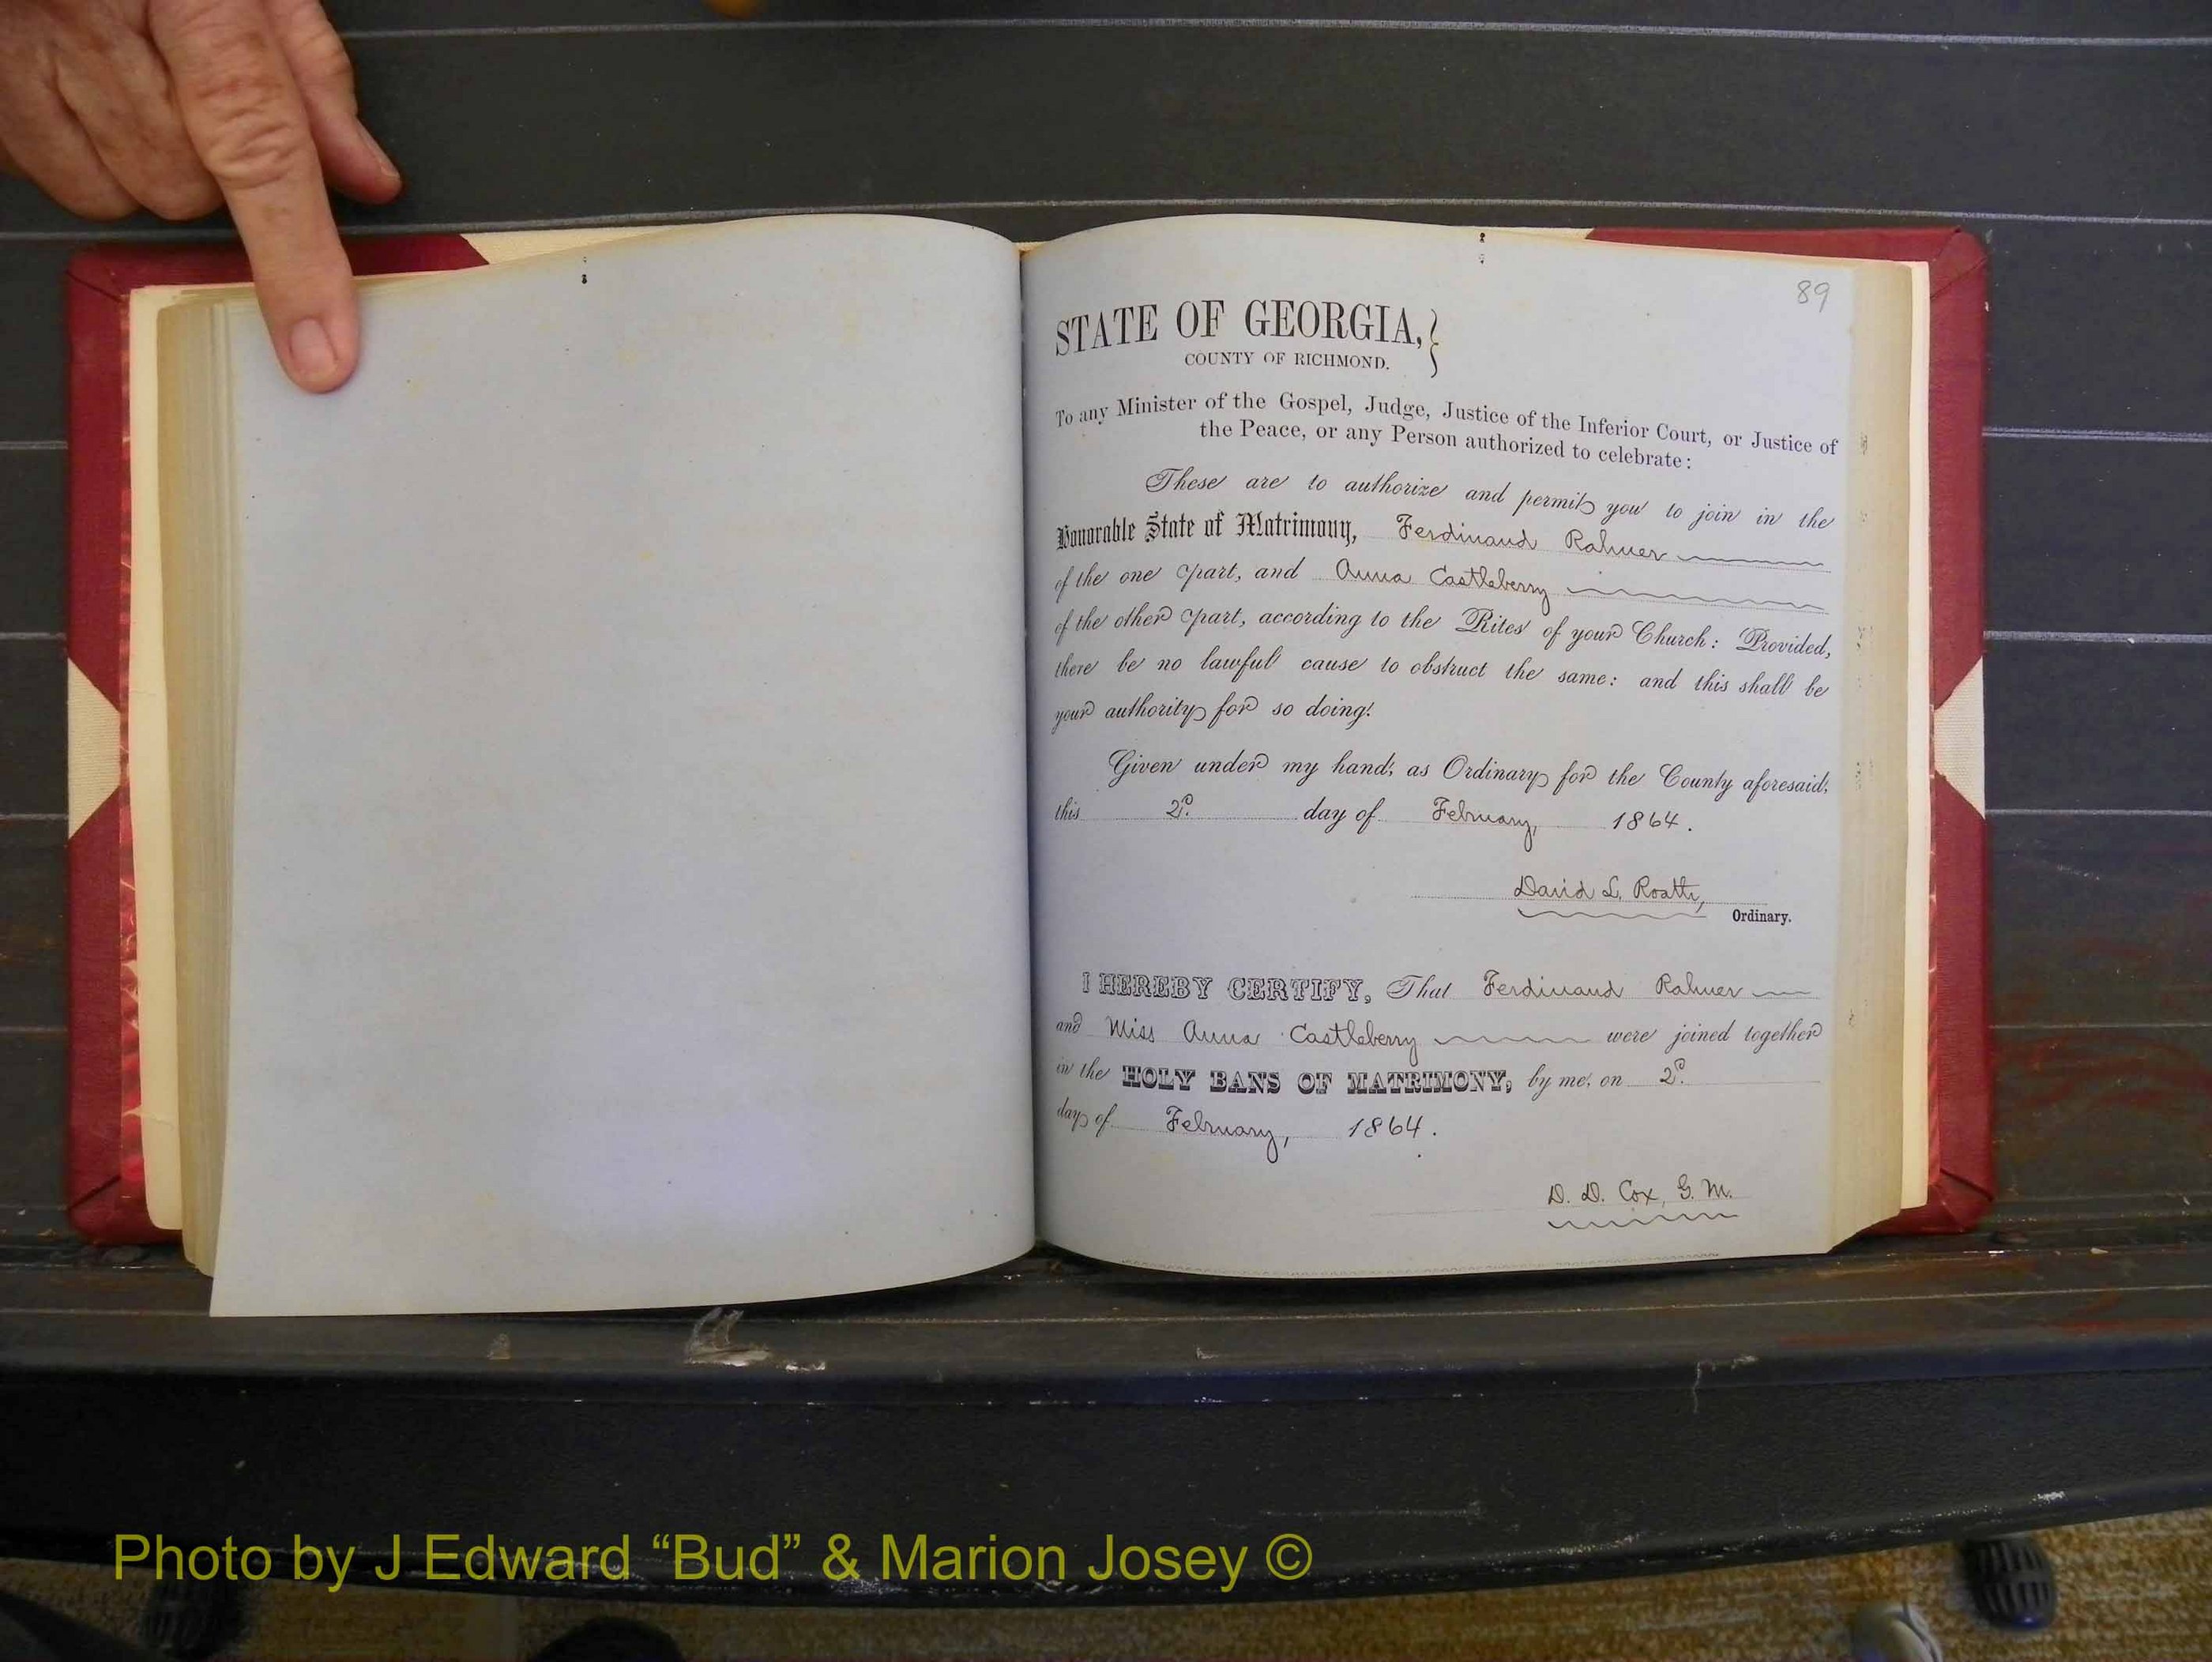 89
STATE OF GEORGIA,
COUNTY OF RICHMOND.
To any Minister of the Gospel, Judge, Justice of the Inferior Court, or Justice of
the Peace, or any Person authorized to celebrate:
These are to authorize and permit you to join in the
Honorable State of Matrimony, Ferdinand Rahner
of the one part, and Anna Castleberry
of the other part, according to the Rites of your Church: Provided,
there be no lawful cause to obstruct the same: and this shall be
your authority for so doing.
Given under my hand, as Ordinary for the County aforesaid,
this 2d. day of February, 1864.
David L. Roath,
Ordinary.
I HEREBY CERTIFY, That Ferdinand Rahner
and Miss Anna Castleberry were joined together
in the HOLY BANS OF MATRIMONY, by me, on 2d.
day of February, 1864.
D. D. Cox, G. M.
Photo by J Edward “Bud” & Marion Josey ©